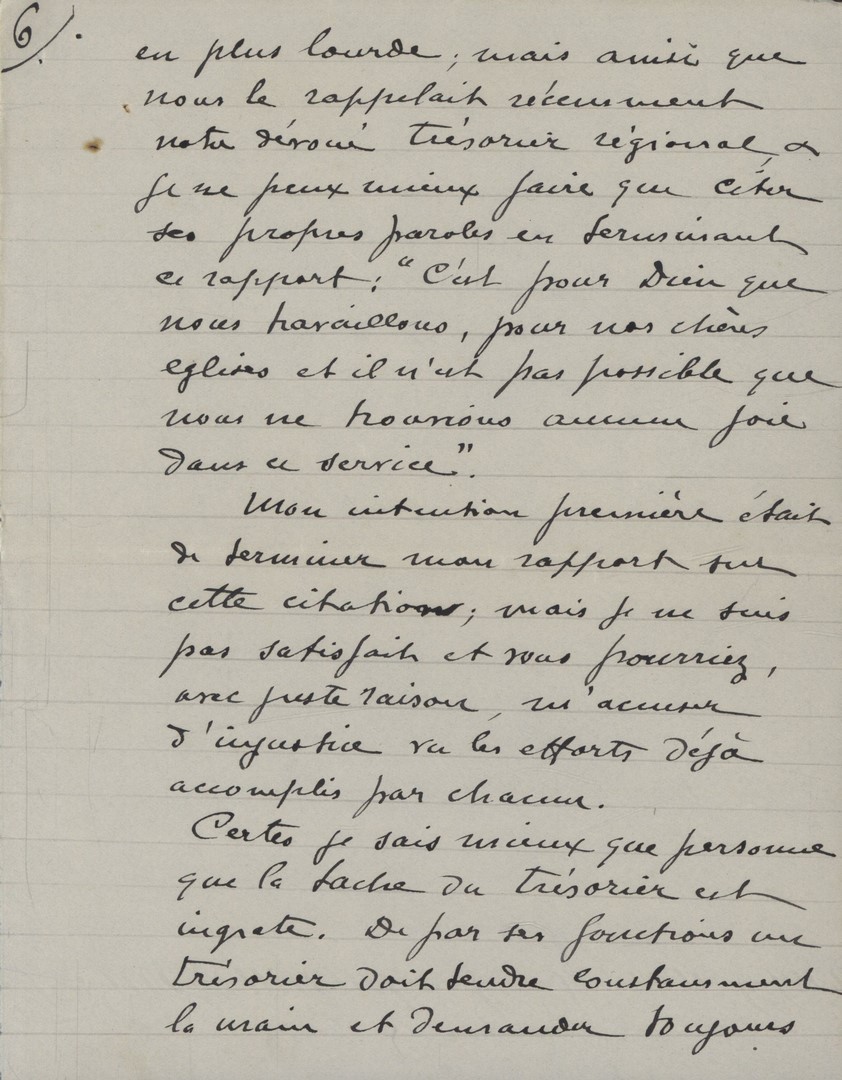 6).
en plus lourde ; mais ainsi que
nous le rappelait récemment
notre dévoué trésorier régional, &
je ne peux mieux faire que citer
ses propres paroles en terminant
ce rapport : "C'est pour Dieu que
nous travaillons, pour nos chères
eglises et il n'est pas possible que
nous ne trouvions aucune joie
dans ce service".
Mon intention première était
de terminer mon rapport sur
cette citation ; mais je ne suis
pas satisfait et vous pourriez,
avec juste raison, m'accuser
d'injustice vu les efforts déjà
accomplis par chacun.
Certes je sais mieux que personne
que la tache du trésorier est
ingrate. De par ses fonctions un
trésorier doit tendre constamment
la main et demander toujours